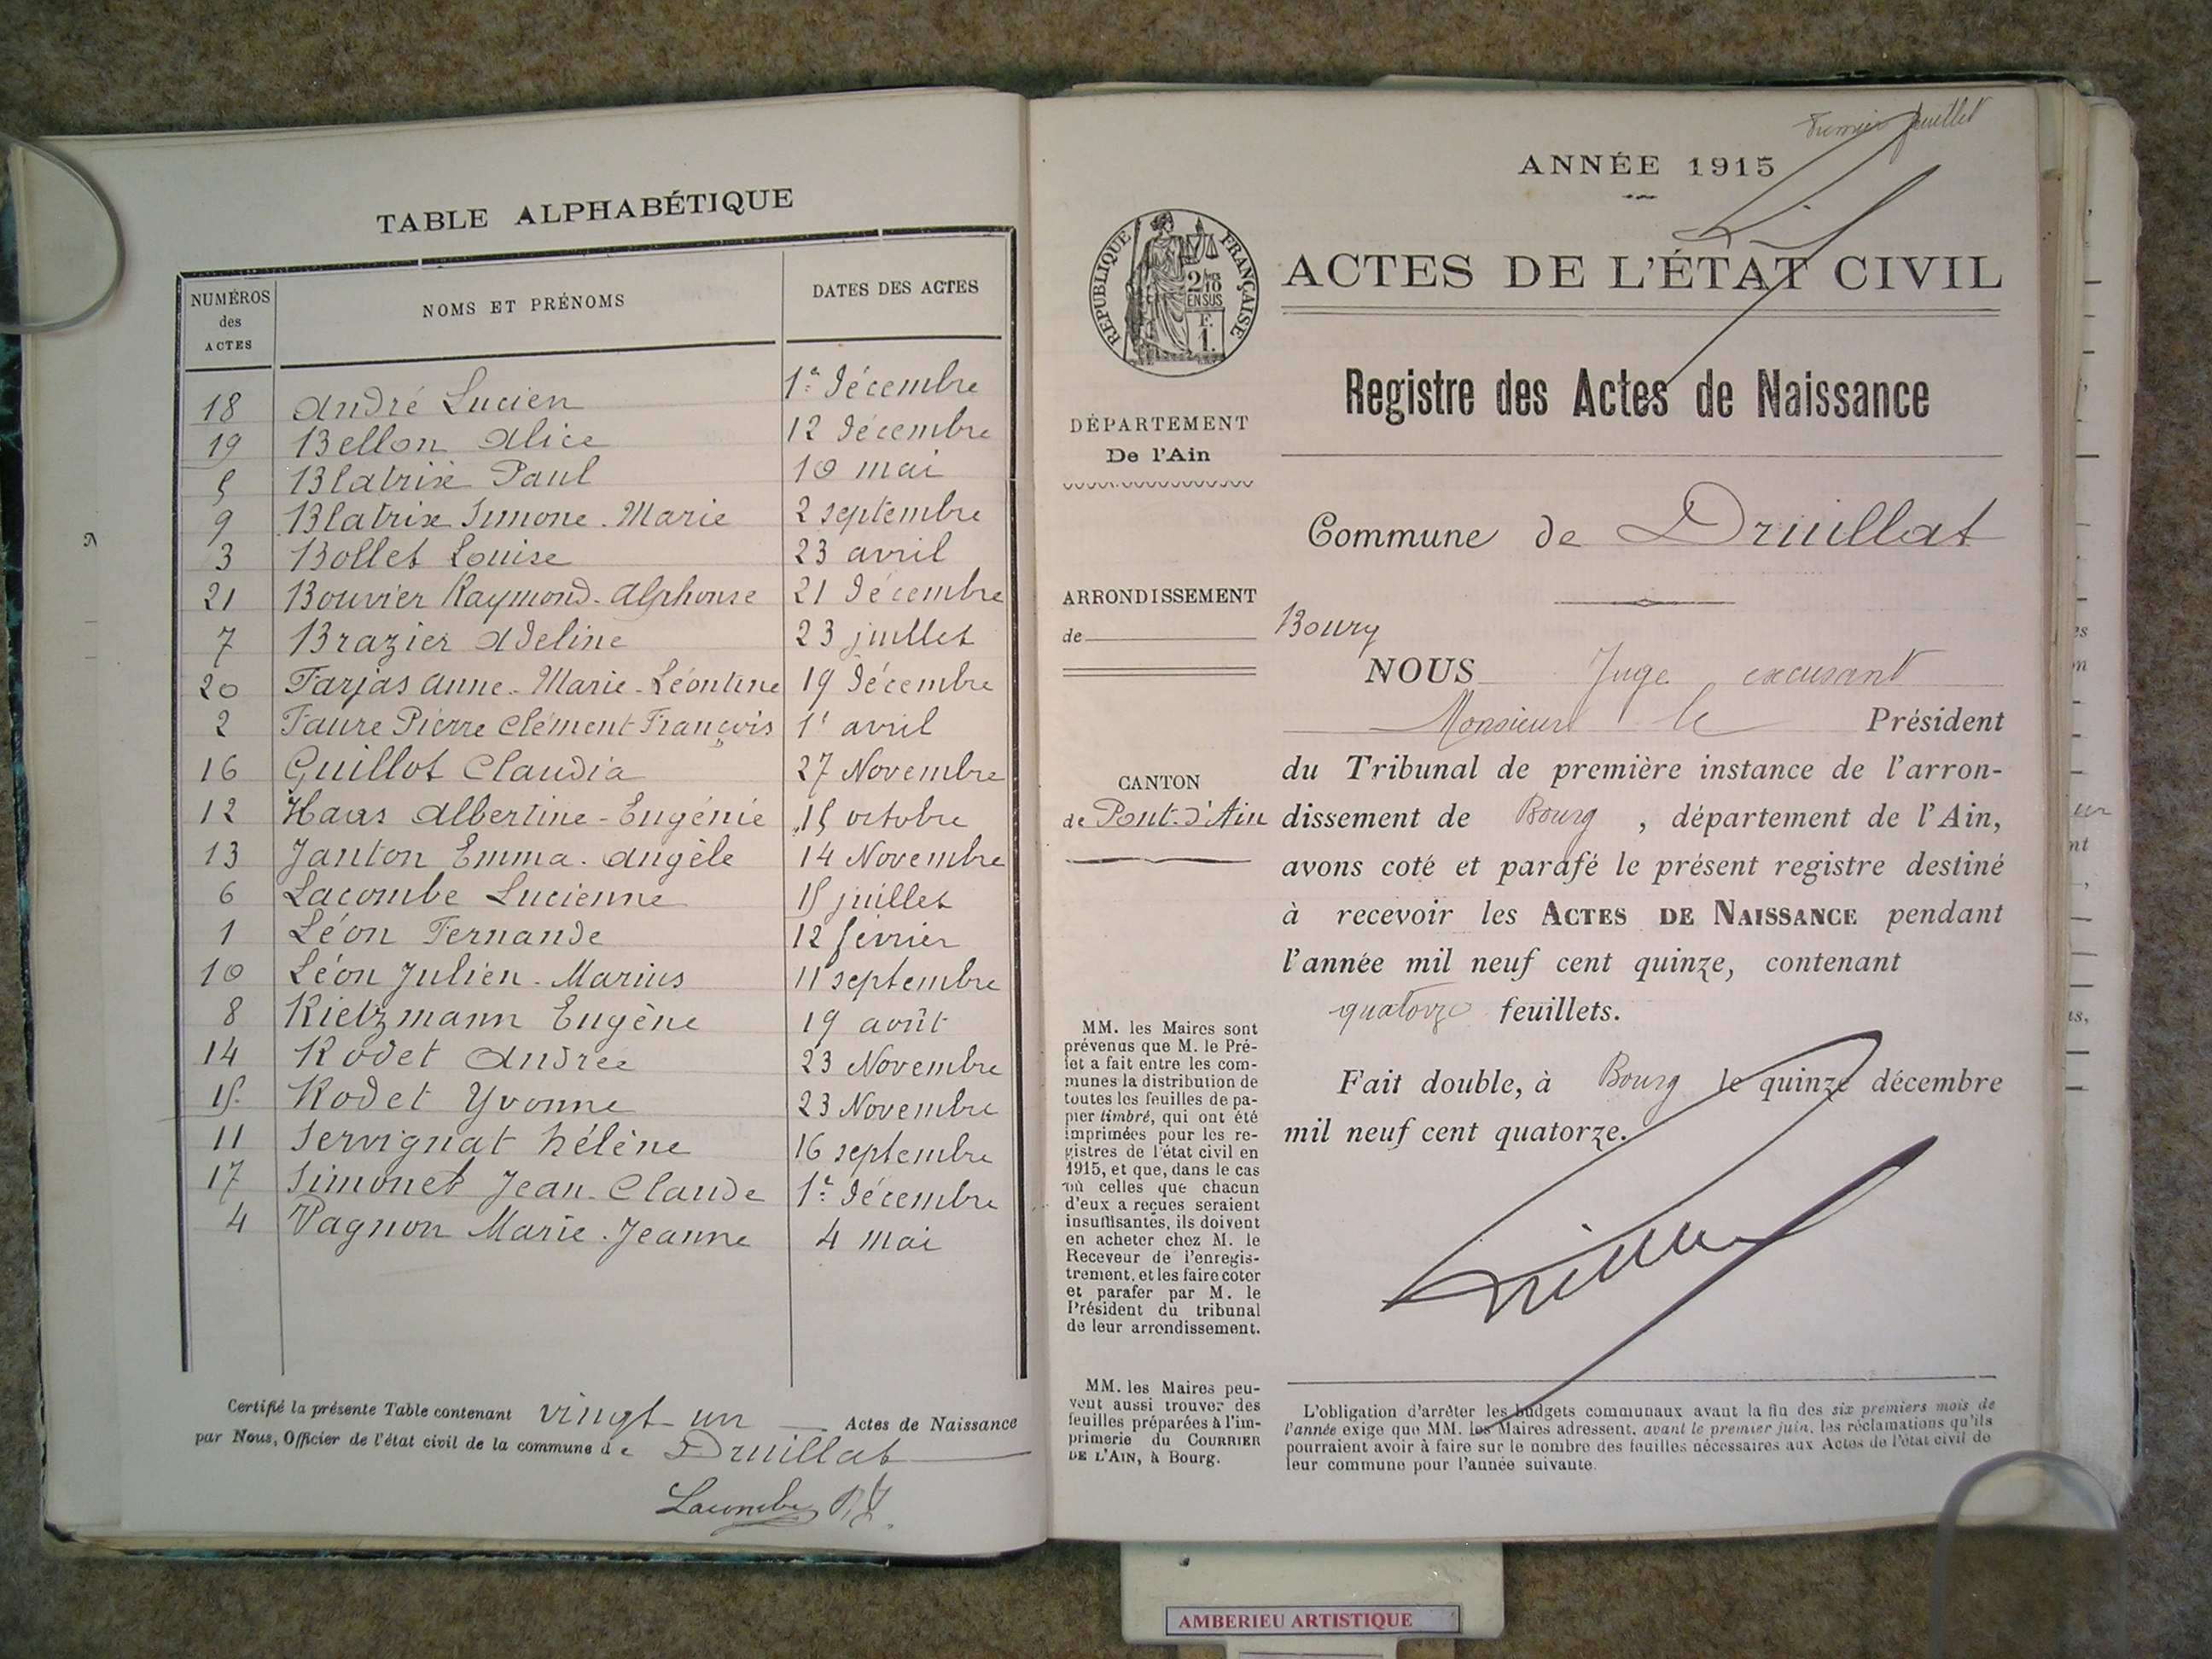 TABLE ALPHABÉTIQUE
NUMÉROS des ACTES NOMS ET PRÉNOMS DATES DES ACTES
18 André Lucien 1er décembre
19 Bellon Alice 12 décembre
5 Blatrix Paul 10 mai
9 Blatrix Simone-Marie 2 septembre
3 Bollet Louise 23 avril
21 Bouvier Raymond-Alphonse 21 décembre
7 Brazier Adeline 23 juillet
20 Farjas Anne-Marie-Léontine 19 décembre
2 Faure Pierre Clément François 1er avril
16 Guillot Claudia 27 Novembre
12 Haas Albertine-Eugénie 15 octobre
13 Janton Emma-Angèle 14 Novembre
6 Lacombe Lucienne 15 juillet
1 Léon Fernande 12 février
10 Léon Julien-Marius 11 septembre
8 Rietzmann Eugène 19 août
14 Rodet Andrée 23 Novembre
15 Rodet Yvonne 23 Novembre
11 Servignat hélène 16 septembre
17 Simonet Jean-Claude 1er décembre
4 Vagnon Marie-Jeanne 4 mai
Certifié la présente Table contenant vingt un Actes de Naissance
par Nous, Officier de l'état civil de la commune de Druillat
Lacombe
Premier feuillet
ANNÉE 1915
ACTES DE L'ÉTAT CIVIL
Registre des Actes de Naissance
RÉPUBLIQUE FRANÇAISE
2/10
EN SUS
F.
1.
DÉPARTEMENT
De l'Ain
Commune de Druillat
ARRONDISSEMENT
de Bourg
CANTON
de Pont-d'Ain
NOUS Juge excusant
Monsieur le Président
du Tribunal de première instance de l'arron-
dissement de Bourg, département de l'Ain,
avons coté et parafé le présent registre destiné
à recevoir les ACTES DE NAISSANCE pendant
l'année mil neuf cent quinze, contenant
quatorze feuillets.
Fait double, à Bourg le quinze décembre
mil neuf cent quatorze.
MM. les Maires sont
prévenus que M. le Pré-
fet a fait entre les com-
munes la distribution de
toutes les feuilles de pa-
pier timbré, qui ont été
imprimées pour les re-
gistres de l'état civil en
1915, et que, dans le cas
où celles que chacun
d'eux a reçues seraient
insuffisantes, ils doivent
en acheter chez M. le
Receveur de l'enregis-
trement, et les faire coter
et parafer par M. le
Président du tribunal
de leur arrondissement.
MM. les Maires peu-
vent aussi trouver des
feuilles préparées à l'im-
primerie du COURRIER
DE L'AIN, à Bourg.
L'obligation d'arrêter les budgets communaux avant la fin des six premiers mois de
l'année exige que MM. les Maires adressent, avant le premier juin, les réclamations qu'ils
pourraient avoir à faire sur le nombre des feuilles nécessaires aux Actes de l'état civil de
leur commune pour l'année suivante.
AMBERIEU ARTISTIQUE